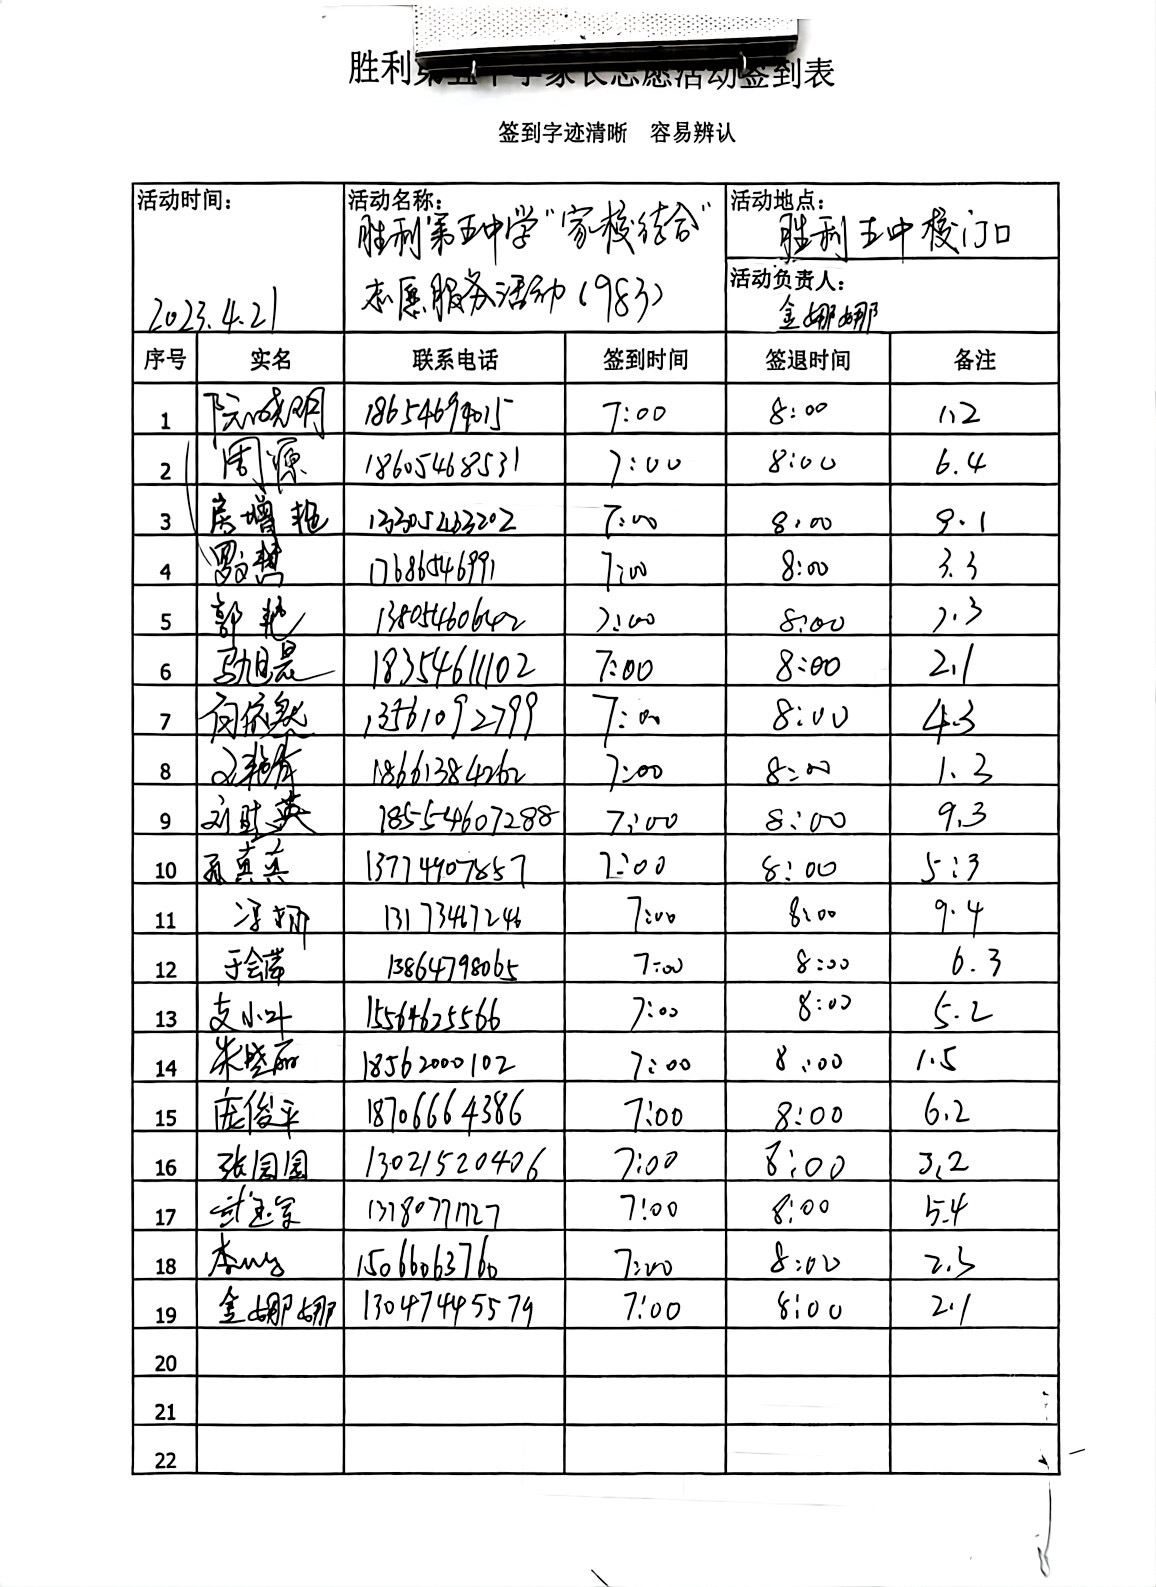 胜利第五中学家长志愿活动签到表
签到字迹清晰 容易辨认
活动时间: 2023.4.21
活动名称: 胜利第五中学“家校结合”
志愿服务活动(983)
活动地点: 胜利五中校门口
活动负责人: 金娜娜
序号 实名 联系电话 签到时间 签退时间 备注
1 阮晓明 18654694015 7:00 8:00 1.2
2 周源 18605468531 7:00 8:00 6.4
3 房增艳 13305463202 7:00 8:00 9.1
4 17686546991 7:00 8:00 3.3
5 郭艳 13805460642 7:00 8:00 7.3
6 18354611102 7:00 8:00 2.1
7 13561092799 7:00 8:00 4.3
8 18661384262 7:00 8:00 1.3
9 刘胜英 185554607288 7:00 8:00 9.3
10 孟真真 13774907857 7:00 8:00 5:3
11 冯娜 13173467246 7:00 8:00 9.4
12 于会萍 13864798065 7:00 8:00 6.3
13 支小叶 15564625566 7:00 8:00 5.2
14 朱晓丽 18562000102 7:00 8:00 1.5
15 庞俊平 18706664386 7:00 8:00 6.2
16 张园园 13021520406 7:00 8:00 3.2
17 13780771727 7:00 8:00 5.4
18 15066063760 7:00 8:00 2.3
19 金娜娜 13047445579 7:00 8:00 2.1
20
21
22